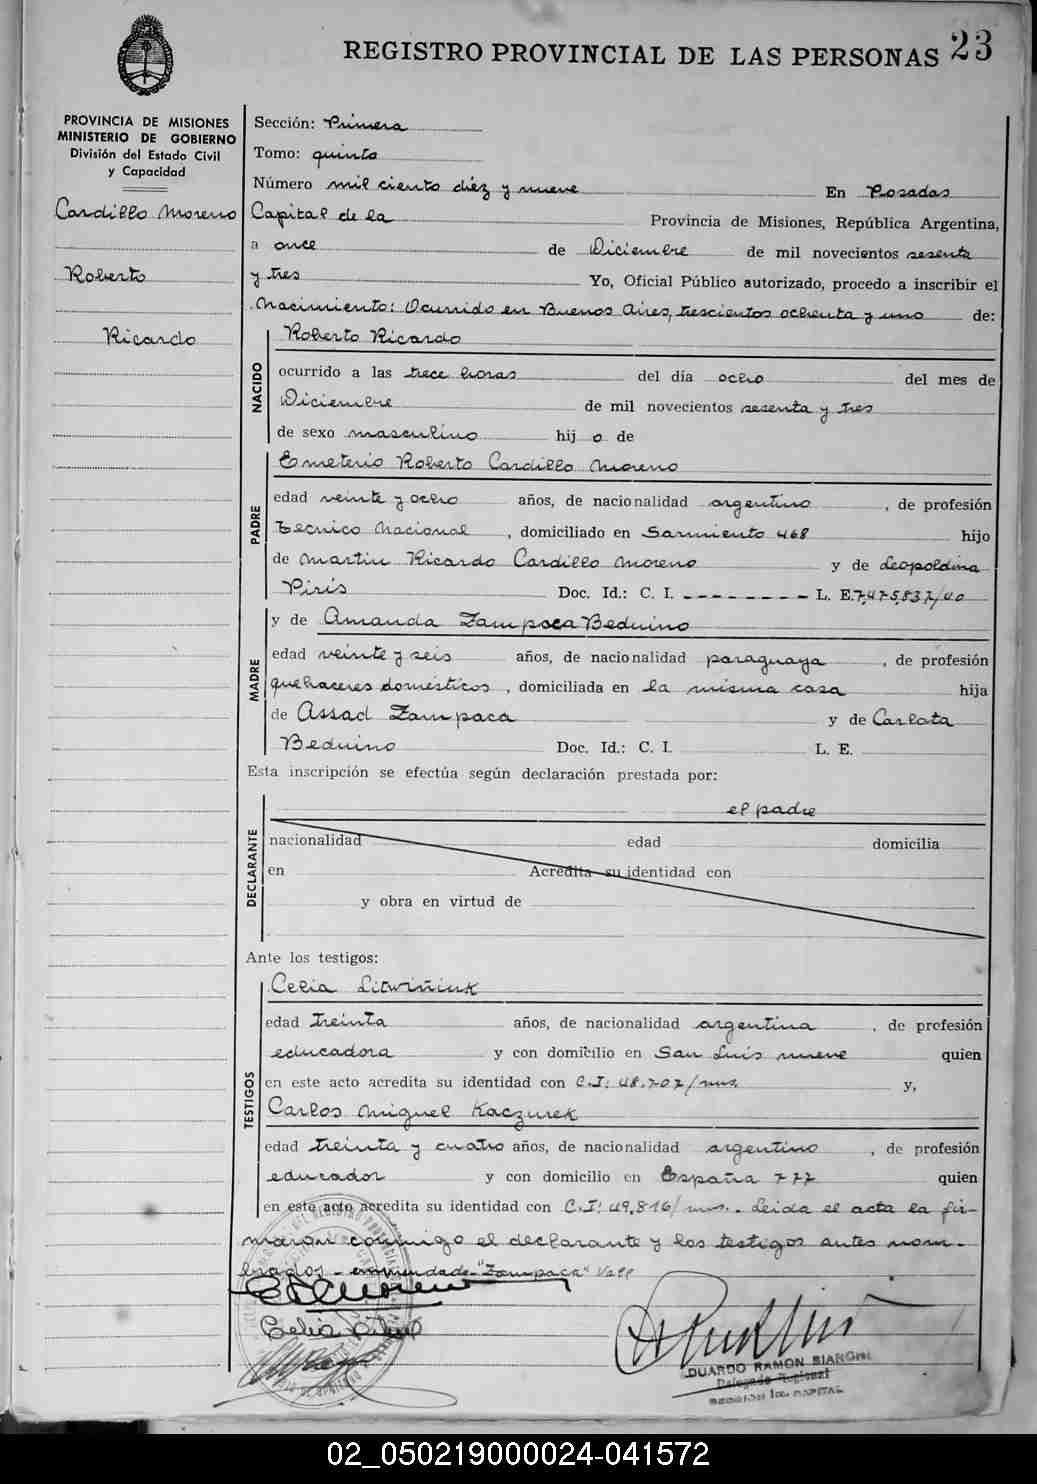 REGISTRO PROVINCIAL DE LAS PERSONAS 23
PROVINCIA DE MISIONES
MINISTERIO DE GOBIERNO
División del Estado Civil
y Capacidad
Cardillo Moreno
Roberto
Ricardo
Sección: Primera
Tomo: quinto
Número mil ciento diez y nueve En Posadas
Capital de la Provincia de Misiones, República Argentina,
a once de Diciembre de mil novecientos sesenta
y tres Yo, Oficial Público autorizado, procedo a inscribir el
Nacimiento: Ocurrido en Buenos Aires, trescientos ochenta y uno de:
NACIDO
Roberto Ricardo
ocurrido a las trece horas del día ocho del mes de
Diciembre de mil novecientos sesenta y tres
de sexo masculino hij o de
PADRE
Emeterio Roberto Cardillo Moreno
edad veinte y ocho años, de nacionalidad argentino, de profesión
Tecnico Nacional, domiciliado en Sarmiento 468 hijo
de Martin Ricardo Cardillo Moreno y de Leopoldina
Piris Doc. Id.: C. I. - - - - - - - - - L. E. 7,475,837/40
MADRE
y de Amanda Zampaca Beduino
edad veinte y seis años, de nacionalidad paraguaya, de profesión
quehaceres domésticos, domiciliada en la misma casa hija
de Assad Zampaca y de Carlota
Beduino Doc. Id.: C. I. L. E.
Esta inscripción se efectúa según declaración prestada por:
DECLARANTE
el padre
nacionalidad edad domicilia
en Acredita su identidad con
y obra en virtud de
Ante los testigos:
TESTIGOS
Celia Litwiñiuk
edad treinta años, de nacionalidad argentina, de profesión
educadora y con domicilio en San Luis nueve quien
en este acto acredita su identidad con C.I: 48.707/mns. y,
Carlos Miguel Kaczurek
edad treinta y cuatro años, de nacionalidad argentino, de profesión
educador y con domicilio en España 777 quien
en este acto acredita su identidad con C.I: 49,816/mns.. Leida el acta la fir-
maron conmigo el declarante y los testigos antes nom-
brados - enmendado - "Zampaca" Vale
DUARDO RAMON BIANCHI
Delegado Regional
SECCION 1ra. CAPITAL
02_050219000024-041572